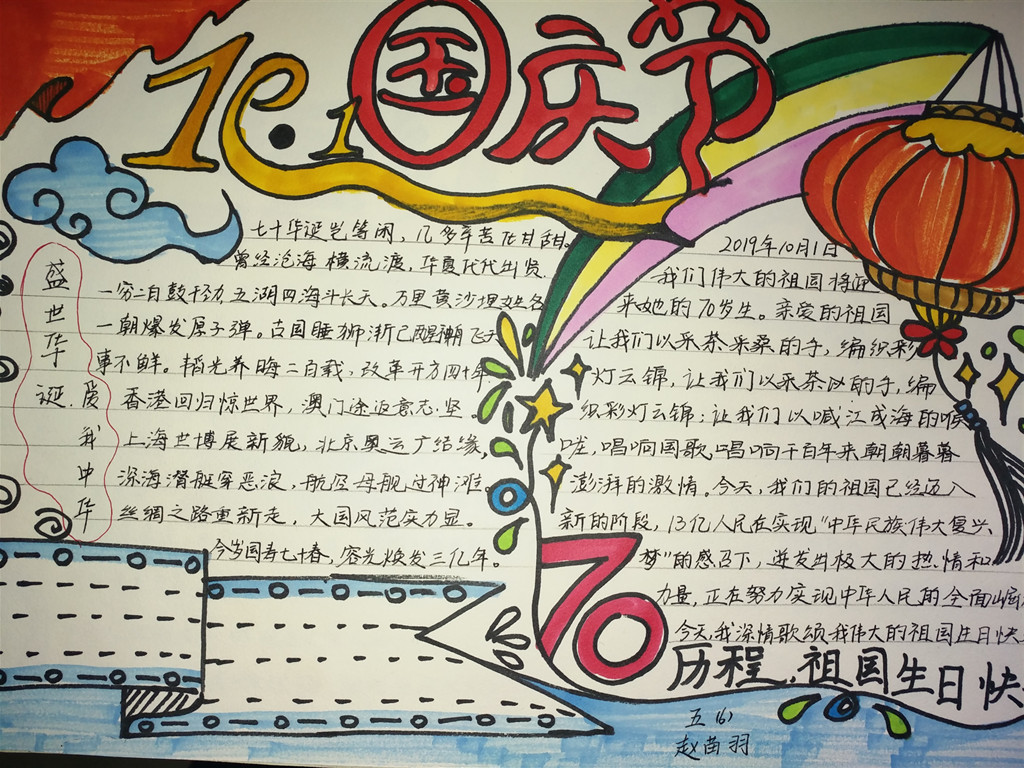 10.1国庆节
盛世华诞
爱我中华
七十华诞岂等闲,几多辛苦化甘甜。
曾经沧海横流渡,华夏代代出贤
一穷二白鼓干劲,五湖四海斗长天。万里黄沙埋姓名
一朝爆发原子弹。古国睡狮渐已醒,潮飞天
事不鲜。韬光养晦二百载,改革开方四十年
香港回归惊世界,澳门途返意志坚
上海世博展新貌,北京奥运广结缘,
深海潜艇穿恶浪,航空母舰过神滩
丝绸之路重新走,大国风范实力显。
今岁国寿七十春,容光焕发三亿年。
2019年10月1日
我们伟大的祖国将迎
来她的70岁生。亲爱的祖国
让我们以采茶采桑的手,编织彩
灯云锦,让我们以采茶以的手,编
织彩灯云锦;让我们以喊江成海的喉
咙,唱响国歌,唱响千百年来朝朝暮暮
澎湃的激情。今天,我们的祖国已经迈入
新的阶段,13亿人民在实现"中华民族伟大复兴
梦"的感召下,迸发出极大的热情和
力量,正在努力实现中华人民的全面
今天,我深情歌颂我伟大的祖国生日快
70
历程,祖国生日快
五(6)
赵苗羽